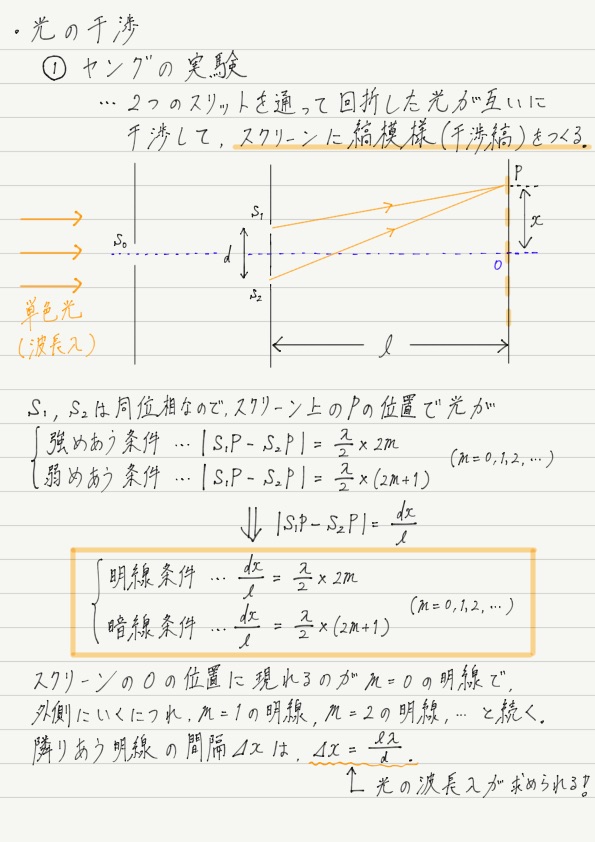 ・光の干渉
① ヤングの実験
… 2つのスリットを通って回折した光が互いに
干渉して、スクリーンに縞模様(干渉縞)をつくる。
P
S₁
x
S₀
d
O
S₂
単色光
(波長λ)
l
S₁, S₂は同位相なので、スクリーン上のPの位置で光が
強めあう条件 … |S₁P - S₂P| = λ/2 × 2m
(m=0,1,2,…)
弱めあう条件 … |S₁P - S₂P| = λ/2 × (2m+1)
⇓ |S₁P - S₂P| = dx/l
明線条件 … dx/l = λ/2 × 2m
(m=0,1,2,…)
暗線条件 … dx/l = λ/2 × (2m+1)
スクリーンのOの位置に現れるのがm=0の明線で、
外側にいくにつれ、m=1の明線, m=2の明線, … と続く。
隣りあう明線の間隔Δxは、Δx = lλ/d 。
↑ 光の波長λが求められる!